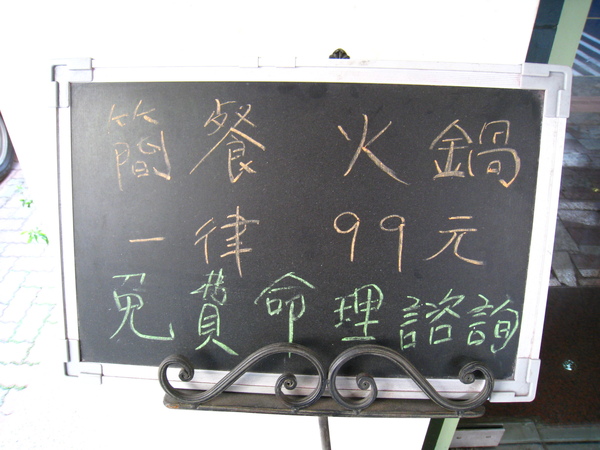 簡餐 火鍋
一律 99元
免費命理諮詢